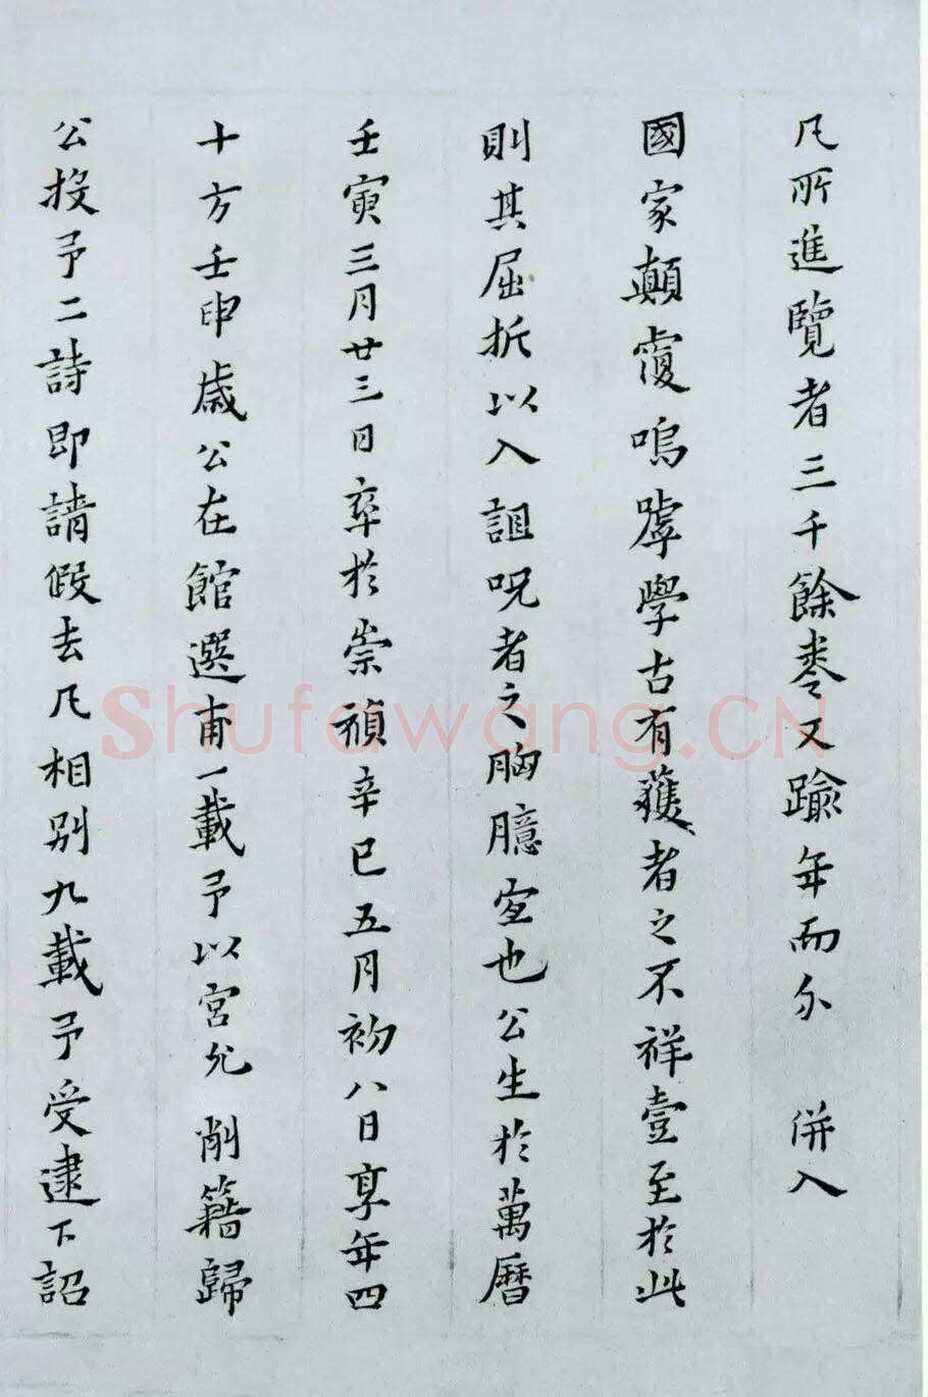 凡所進覽者三千餘卷又踰年而 併入
國家顛覆嗚虖學古有獲者之不祥壹至於此
則其屈折以入詛呪者之胸臆宜也公生於萬曆
壬寅三月廿三日卒於崇禎辛巳五月初八日享年四
十方壬申歲公在館選甫一載予以宮允削籍歸
公投予二詩即請假去凡相別九載予受逮下詔
Shufawang.CN